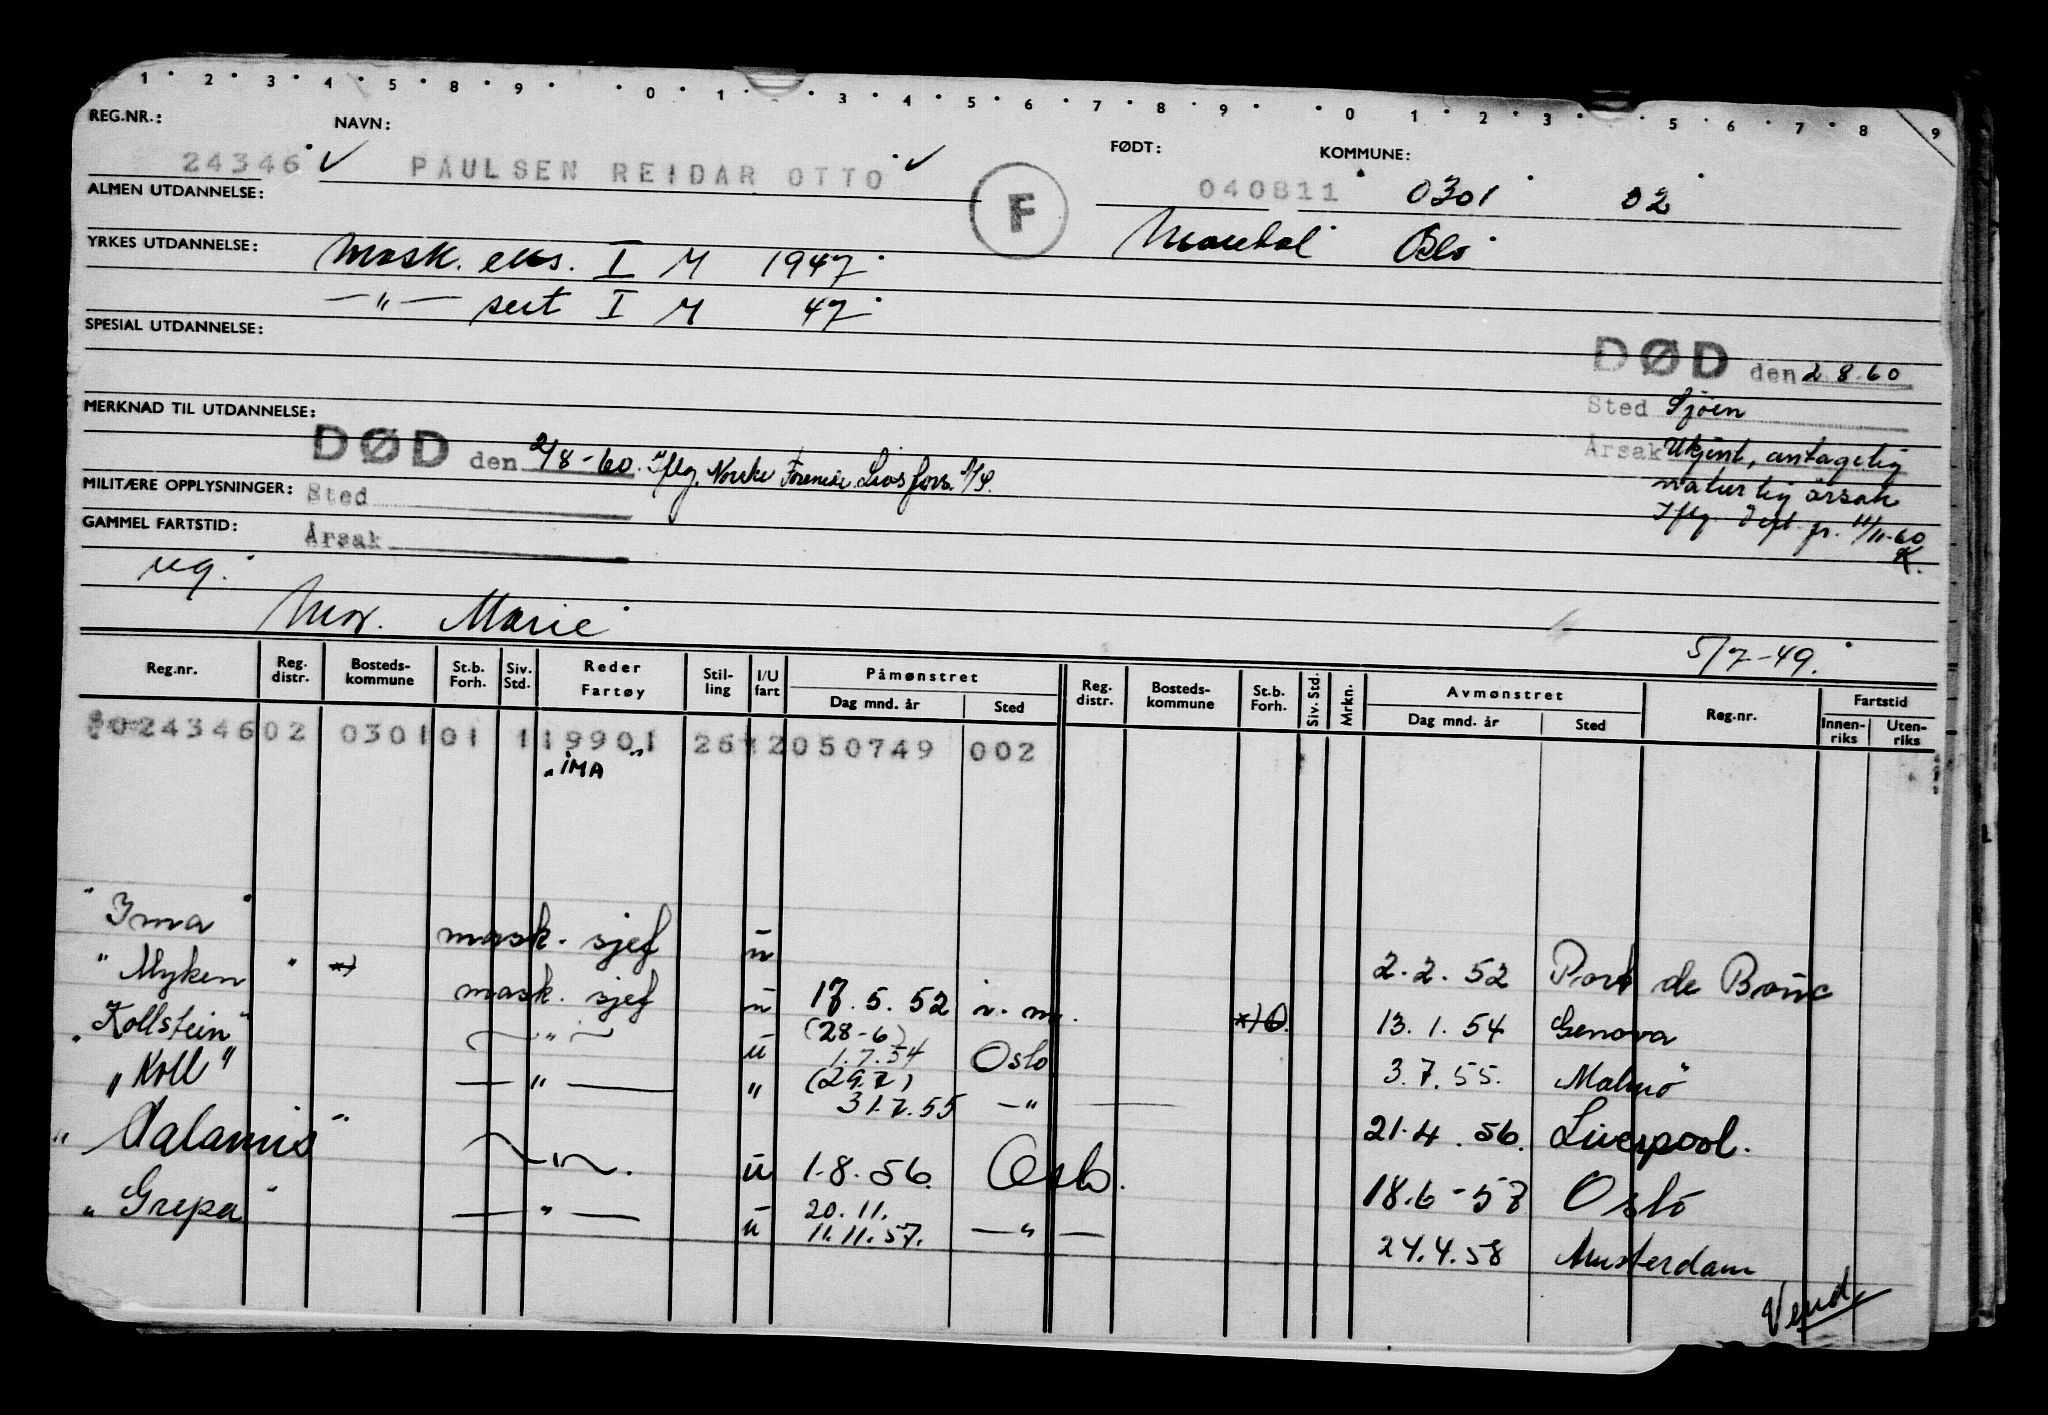 1 · 2 · 3 · 4 · 5 · 8 · 9 · · 0 · 1 · · 3 · 4 · 5 · 6 · 7 · 8 · 9 · · 0 · 1 · 2 · 3 · · 5 · 6 · 7 · 8 · 9
REG.NR.: NAVN: FØDT: KOMMUNE:
24346 ✓ PAULSEN REIDAR OTTO ✓ F 040811 0301 02
ALMEN UTDANNELSE:
Oslo
YRKES UTDANNELSE: Mask. eks. I M 1947
—"— sert I M 47
SPESIAL UTDANNELSE:
DØD den 2 8 60
Sted Sjøen
MERKNAD TIL UTDANNELSE:
Årsak Ukjent, antagelig
naturlig årsak
Iflg. Dept. fr. 11/11-60
K.
DØD den 2/8-60. Iflg. Norske Forenede Livsfors. A/S.
MILITÆRE OPPLYSNINGER: Sted
GAMMEL FARTSTID: Årsak
ug.
Mor. Marie
5/7-49.
Reg.nr. Reg. distr. Bosteds-kommune St.b. Forh. Siv. Std. Reder Fartøy Stil-ling I/U fart Påmønstret Dag mnd. år Sted Reg. distr. Bosteds-kommune St.b. Forh. Siv. Std. Mrkn. Avmønstret Dag mnd. år Sted Reg.nr. Fartstid Innen-riks Uten-riks
02434602 030101 1 19901 26 2050749 002
"IMA"
"Ima" mask. sjef u 2.2.52 Port de Bouc
"Myken" *) mask. sjef u 17.5.52 i.m. *) 13.1.54 Genova
"Kollstein" —"— u (28-6) 1.7.54 Oslo 3.7.55. Malmö
"Koll" —"— " (29.7) 31.7.55 —"— 21.4.56. Liverpool.
"Salamis" —"—. u 1.8.56. Oslo. 18.6-57 Oslo
"Grepa" —"— u 20.11. 11.11.57. —"— 24.4.58 Amsterdam
Vend